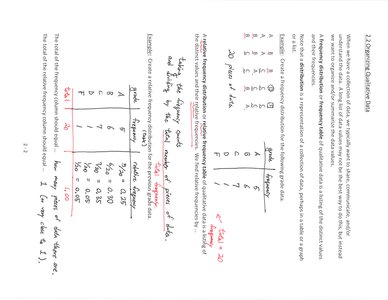 2.2 Organizing Qualitative Data
When we have a collection of data, we typically want to share, communicate, and/or
understand the data. A long list of data values may not be the best way to do this, but instead
we want to organize and/or summarize the data values.
A frequency distribution or frequency table of qualitative data is a listing of the distinct values
and their frequencies.
Note that a distribution is a representation of a collection of data, perhaps in a table or a graph
or a list.
Example: Create a frequency distribution for the following grade data.
20 pieces of data.
grade frequency
A 5
B 6
C 7
D 1
F 1
total = 20
A relative frequency distribution or relative frequency table of qualitative data is a listing of
the distinct values and their relative frequencies. We find relative frequencies by ...
taking the frequency counts
and dividing by the total number of pieces of data.
total frequency
Example: Create a relative frequency distribution for the previous grade data.
grade frequency relative frequency
A 5 5/20 = 0.25
B 6 6/20 = 0.30
C 7 7/20 = 0.35
D 1 1/20 = 0.05
F 1 1/20 = 0.05
total 20 1.00
The total of the frequency column should equal ... how many pieces of data there are.
The total of the relative frequency column should equal ... 1 (or very close to 1).
2-2